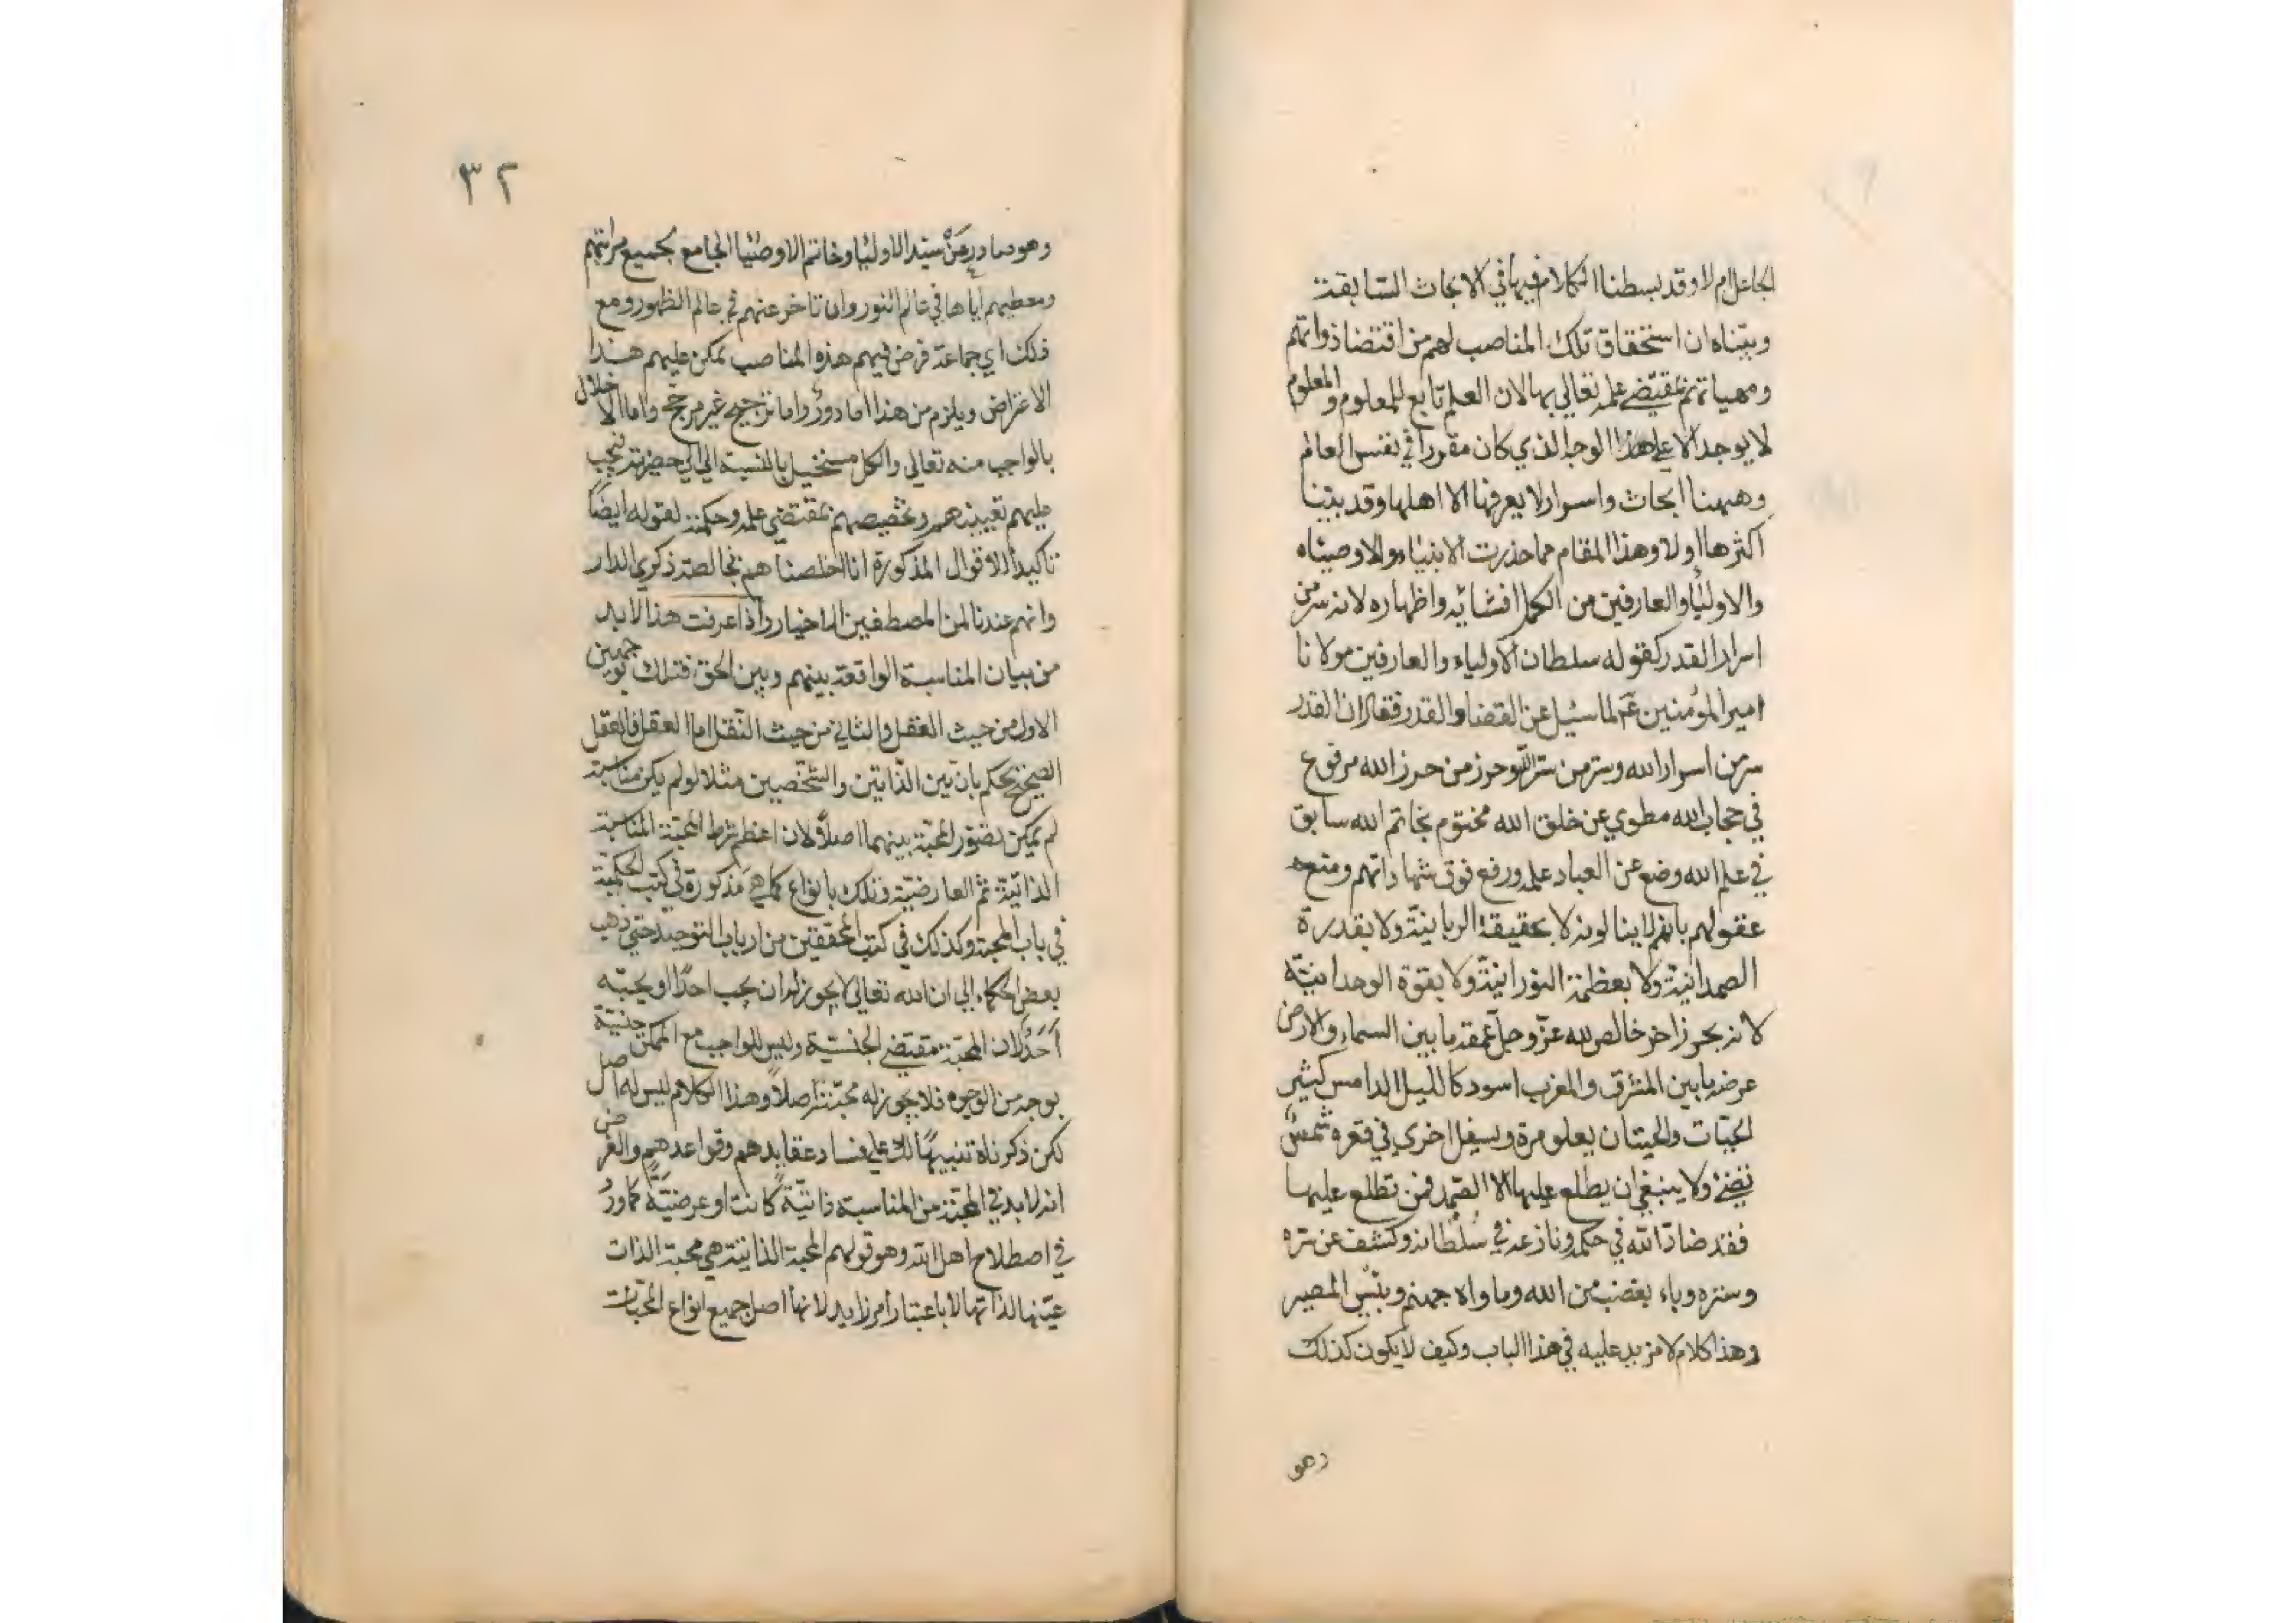 الجاعل ام لا وقد بسطنا الكلام فيها في الابحاث السابقة
وبيناه ان استحقاق تلك المناصب لهم من اقتضا ذواتهم
ومهياتهم بمقتضي علمه تعالي بها لان العلم تابع للمعلوم والمعلوم
لا يوجد الا علي هذا الوجه الذي كان مقررا في نفس العالم
وههنا ابحاث واسرار لا يعرفها الا اهلها وقد بينا
اكثرها اولا وهذا المقام مما حذرت الانبياء والاوصياء
والاولياء والعارفين من الكمل افشائه واظهاره لانه سر من
اسرار القدر كقوله سلطان الاولياء والعارفين مولانا
امير المؤمنين عم لما سئيل عن القضا والقدر فقال ان القدر
سر من اسرار الله وستر من ستر الله وحرز من حرز الله مرفوع
في حجاب الله مطوي عن خلق الله مختوم بخاتم الله سابق
في علم الله وضع عن العباد علمه ورفع فوق شهاداتهم ومنعه
عقولهم بانهم لا ينالونه لا بحقيقة الربانية ولا بقدرة
الصمدانية ولا بعظمة النورانية ولا بقوة الوحدانية
لانه بحر زاخر خالص لله عز وجل عمقه ما بين السماء والارض
عرضه ما بين المشرق والمغرب اسود كالليل الدامس كثير
الحيات والحيتان يعلو مرة ويسفل اخري في قعره شمس
تضئ ولا ينبغي ان يطلع عليها الا الصمد فمن تطلع عليها
فقد ضاد الله في حكمه ونازعه في سلطانه وكشف عن سره
وستره وباء بغضب من الله وماواه جهنم وبئس المصير
وهذا كلام لا مزيد عليه في هذا الباب وكيف لا يكون كذلك
وهو
٣٢
وهو صادر عن سيد الاوليا وخاتم الاوصيا الجامع لجميع مراتبهم
ومعطيهم اياها في عالم النور وان تاخر عنهم في عالم الظهور ومع
ذلك اي جماعة فرض فيهم هذه المناصب يمكن عليهم هذا
الاعتراض ويلزم من هذا اما دور واما ترجيح غير مرجح واما الاخلال
بالواجب منه تعالي والكل مستحيل بالنسبة الي الي حضرته فيجب
عليهم تعيينهم وتخصيصهم بمقتضي علمه وحكمته لقوله ايضا
تاكيدا للاقوال المذكورة انا اخلصناهم بخالصة ذكري الدار
وانهم عندنا لمن المصطفين الاخيار واذا عرفت هذا لا بد
من بيان المناسبة الواقعة بينهم وبين الحق فذلك بوجهين
الاول من حيث العقل والثاني من حيث النقل اما العقل فالعقل
الصحيح يحكم بان بين الذاتين والشخصين مثلا لو لم يكن مناسبة
لم يمكن تصور المحبة بينهما اصلا لان اعظم شرط المحبة المناسبة
الذاتية ثم العارضية وذلك بانواع كما هي مذكورة في كتب الحكمية
في باب المحبة وكذلك في كتب المحققين من ارباب التوحيد حتي ذهب
بعض الحكماء الي ان الله تعالي لا يجوز له ان يحب احدا او يحبه
احد لان المحبة مقتضي الجنسية وليس للواجب مع الممكن جنسية
بوجه من الوجوه فلا يجوز له محبته اصلا وهذا الكلام ليس له اصل
لكن ذكرناه تنبيها لك علي فساد عقايدهم وقواعدهم والغرض
انه لا بد في المحبة من المناسبة ذاتية كانت او عرضية كما ورد
في اصطلاح اهل الله وهو قولهم المحبة الذاتية هي محبة الذات
عينها لذاتها لا باعتبار امر زايد لانها اصل جميع انواع المحبات